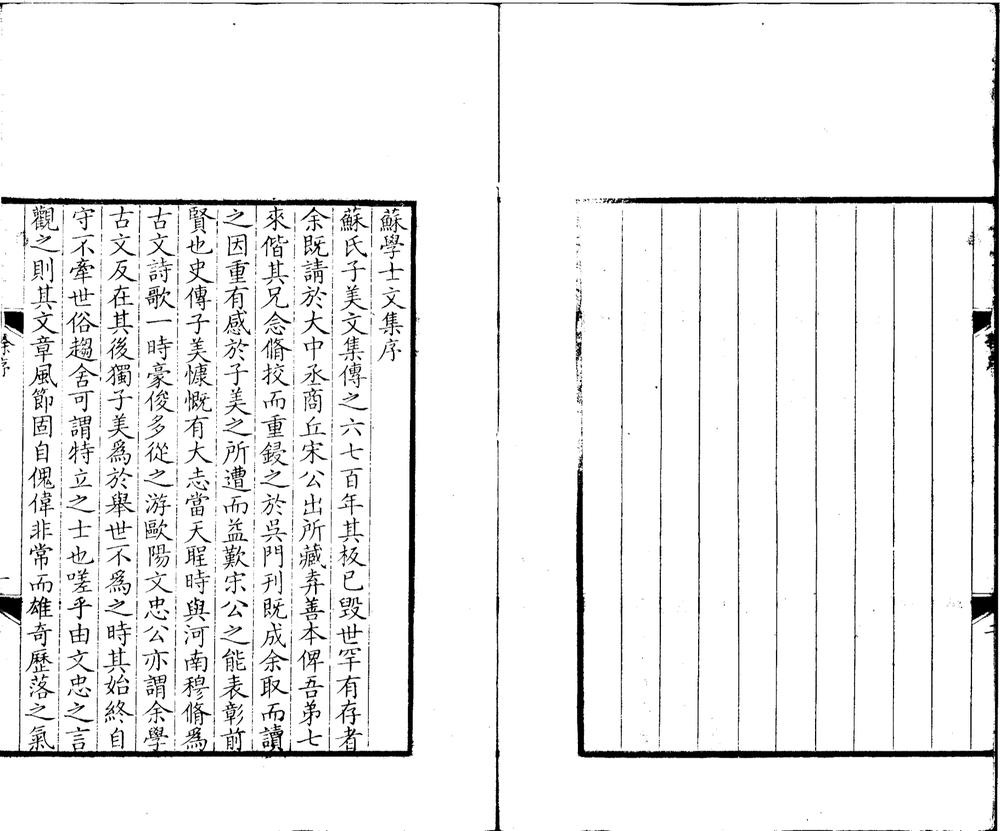 蘇學士文集序
蘇氏子美文集傳之六七百年其板已毀世罕有存者
余既請於大中丞商丘宋公出所藏弆善本俾吾弟七
來偕其兄念脩挍而重鋟之於吳門刊既成余取而讀
之因重有感於子美之所遭而益歎宋公之能表彰前
賢也史傳子美慷慨有大志當天聖時與河南穆脩爲
古文詩歌一時豪俊多從之游歐陽文忠公亦謂余學
古文反在其後獨子美爲於舉世不爲之時其始終自
守不牽世俗趨舍可謂特立之士也嗟乎由文忠之言
觀之則其文章風節固自傀偉非常而雄奇歷落之氣
徐序
一